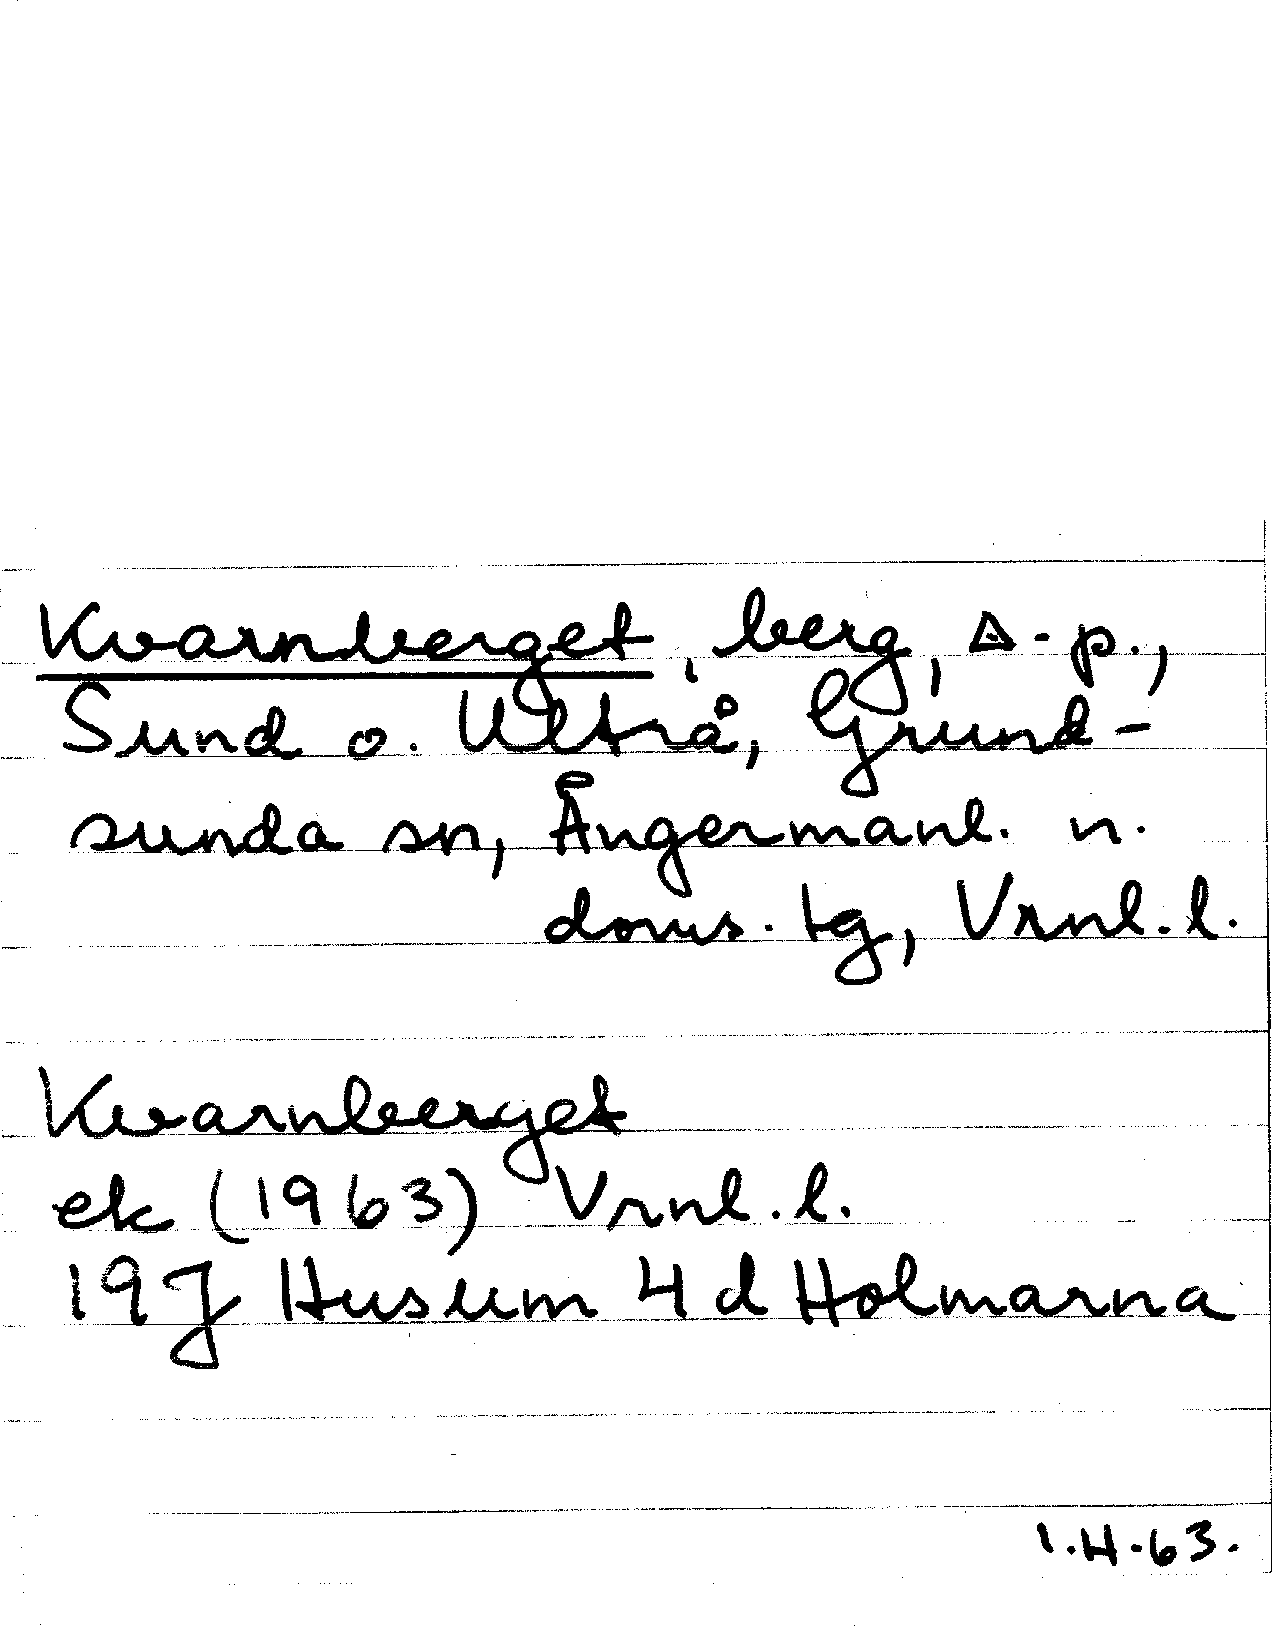 Kvarnberget, berg, Δ-p.,
Sund o. Ultrå, Grund-
sunda sn, Ångermanl. n.
doms. tg, Vrnl. l.
Kvarnberget
ek (1963) Vrnl. l.
19J Husum 4d Holmarna
I.H.63.